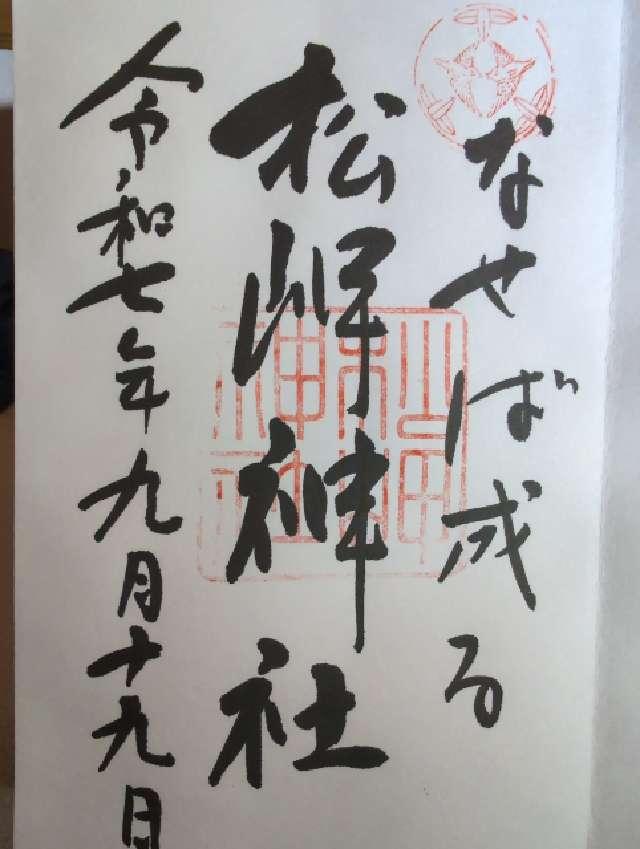 なせば成る
松岬神社
令和七年九月十九日